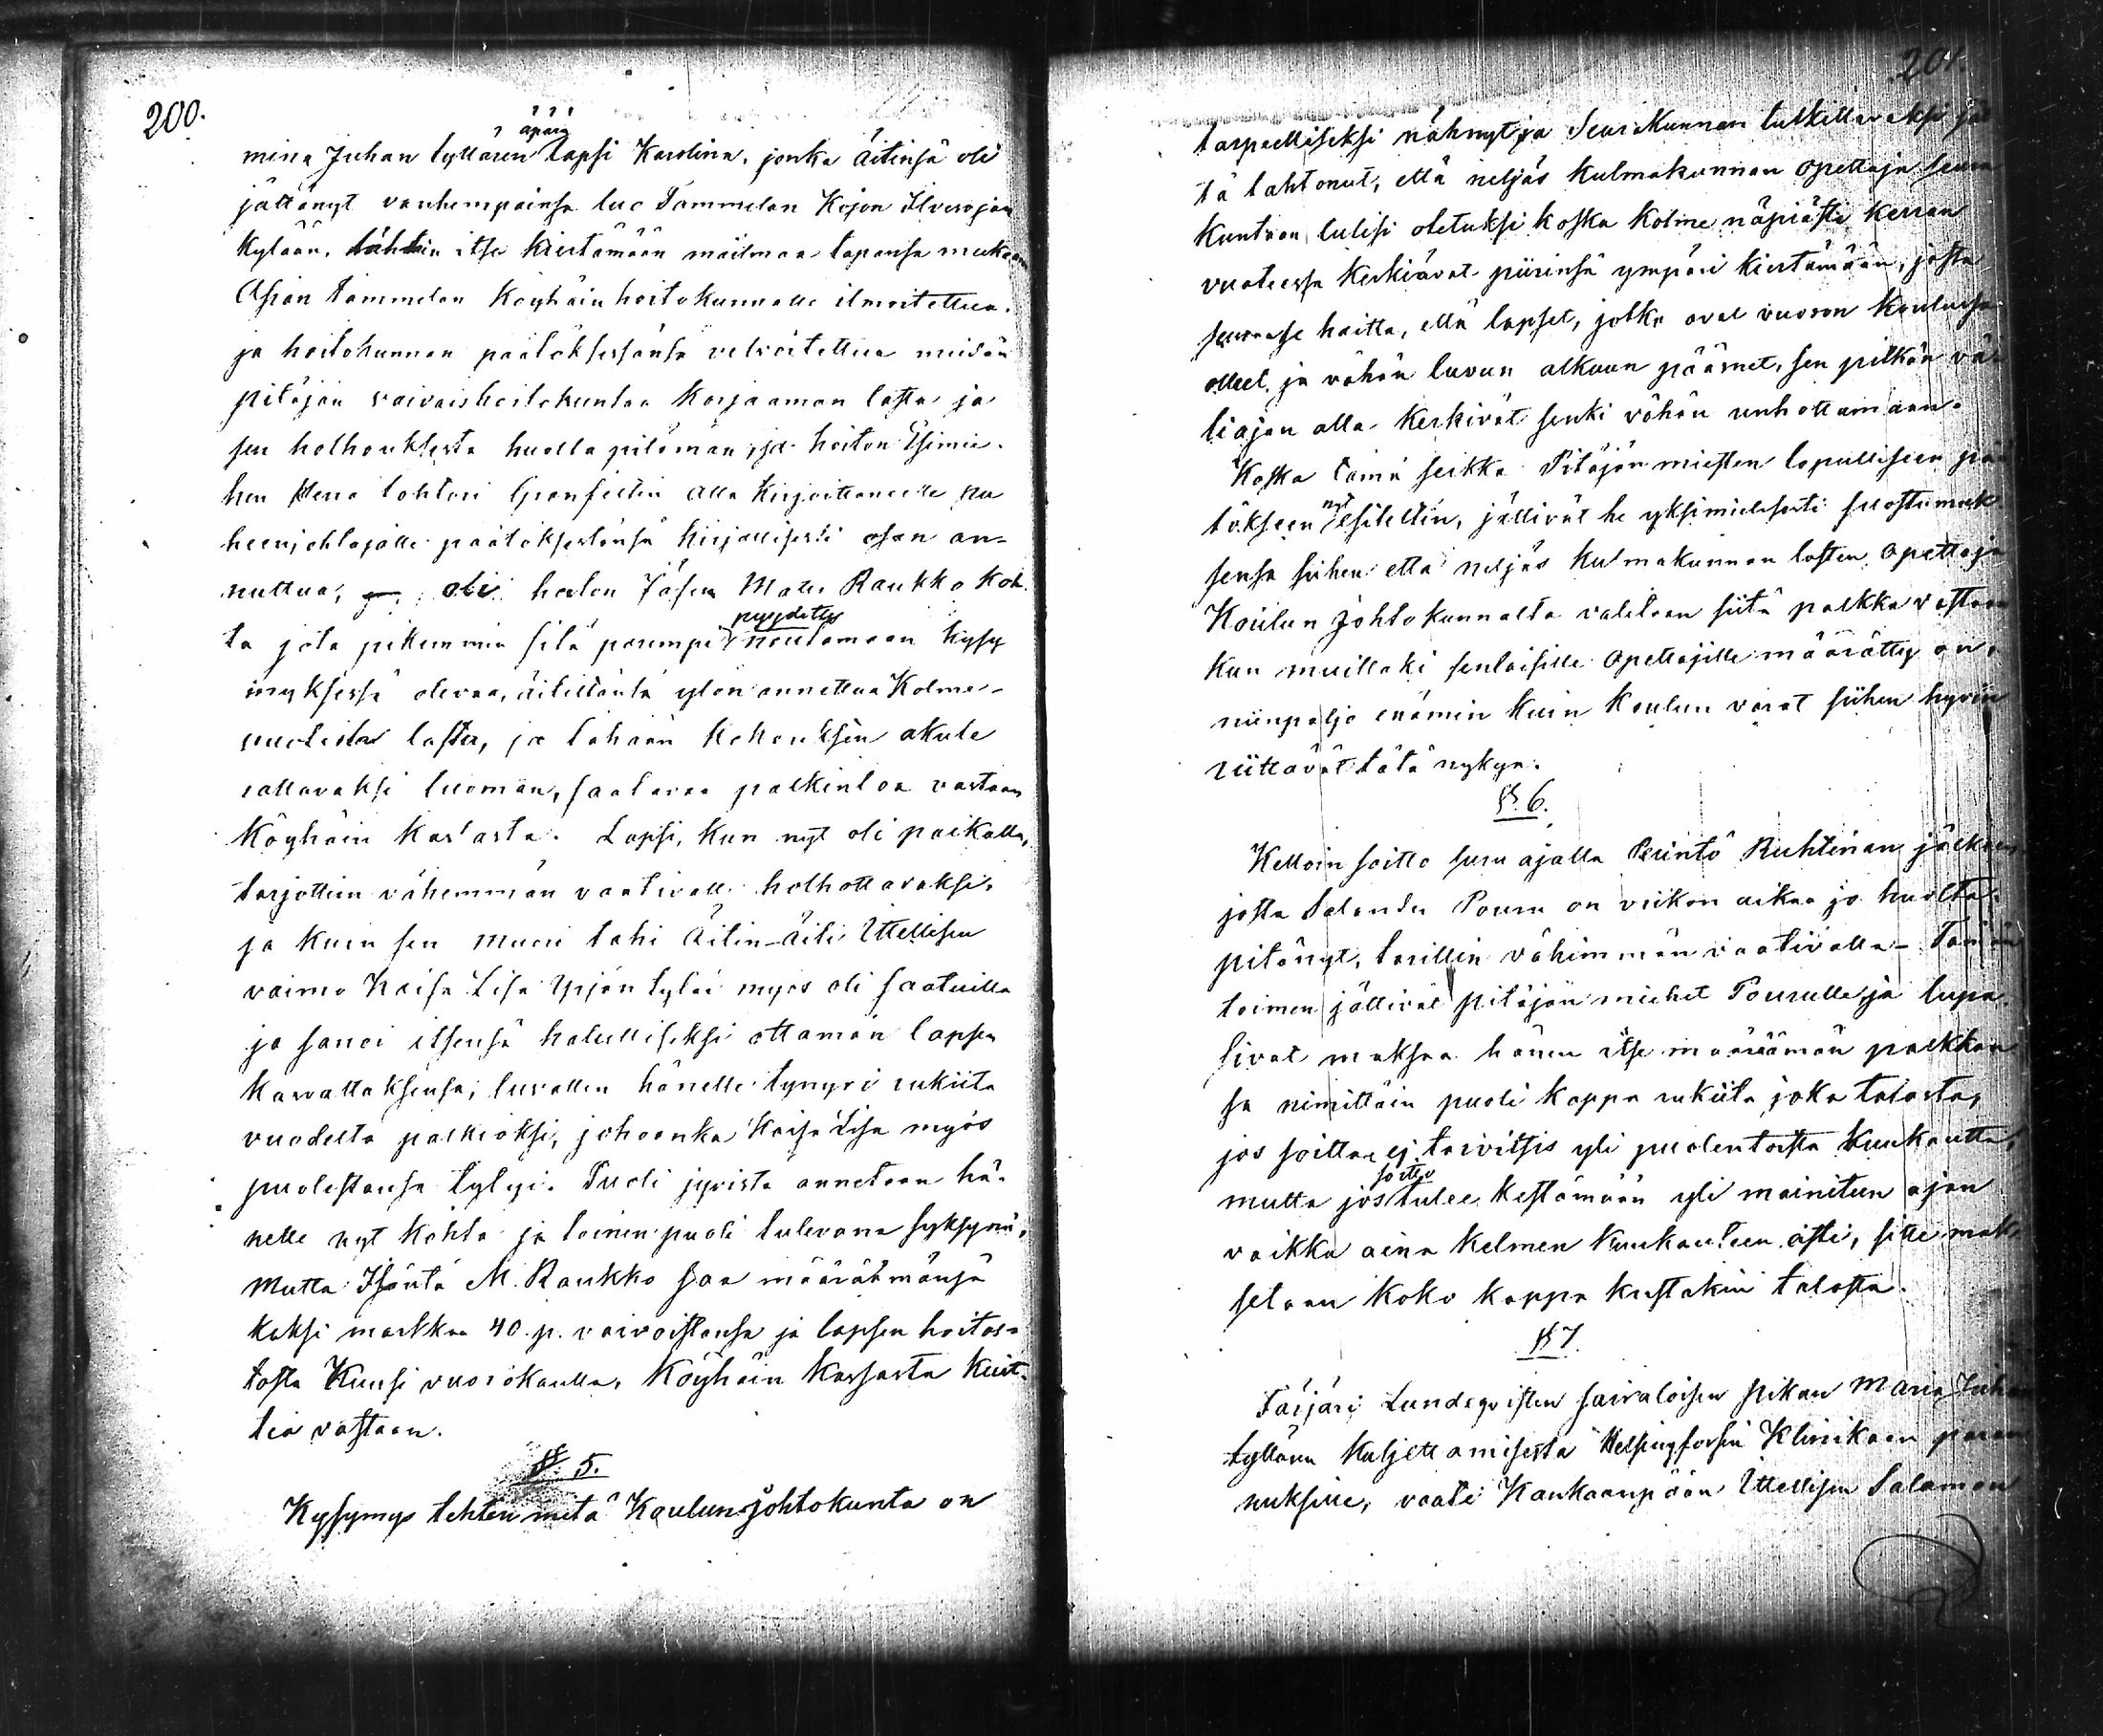 200.
äpärä
miina Juhan tyttären lapsi Karolina, jonka äitinsä oli
jättänyt vanhempainsa luo Tammelan Kojon Ilvesojan
kylään, lähtein itse kiertämään mailmaa tapansa mukaan
Asian Tammelan Köyhäin hoitokunnalle ilmoitettua.
ja hoitokunnan päätöksessänsä velvoitettua meidän
pitäjän vaivaishoitokuntaa korjaaman lasta ja
sen holhouksesta huolta pitämän, ja hoiton Esimie-
hen Herra tohtori Granfeltin alla kirjoittaneelle pu
heenjohtajalle päätöksestänsä kirjallisesti osan an-
nettua, oli hoiton Jäsen Matts Raukko koh-
pyydetty
ta jota pikemmin sitä parempi noutamaan kysy
myksessä olevaa, äitiltänsä ylön annettua Kolme-
vuotista lasta, ja tähään kokouksen
valtavaksi tuoman, saatavaa palkintoa vastaan
Köyhäin kassasta. Lapsi, kun nyt oli paikalla,
tarjottiin vähemmän vaativalle holhottavaksi,
ja kuin sen muori tahi Äitin-äiti Ittellisen
vaimo Kaisa Lisa Yrjön tytär myös oli saatuilla
ja sanoi itsensä halulliseksi ottaman lapsen
kasvattaksensa, luvattiin hänelle tynyri rukiita
vuodelta palkioksi, johoonka Kaisa Lisa myös
puolestansa tytyi. Puoli jyvistä annetaan hä-
nelle nyt kohta ja toinen puoli tulevana syksynä,
Mutta Isäntä M. Raukko saa määräämänsä
kaksi markkaa 40. p. vaivoistansa ja lapsen hoitos-
tosta Kuusi vuorokautta, Köyhäin kassasta kuit-
tia vastaan.
§ 5.
Kysymys tehten mitä Koulun johtokunta on
201.
tarpeelliseksi nähnyt ja Seurakunnan tutkittavaksi jät
tä tahtonut, että neljäs kulmakunnan opettaja seura
kuntaan tulisi otetuksi koska kolme näpiästi kerran
vuoteessa kerkiävät piirinsä ympäri kiertämään, josta
seuraa se haitta, että lapset, jotka ovat vuoron koulussa
olleet, ja vähän luvun alkuun päärnet, sen pitkän vä-
liajan alla kerkivät senki vähän unhottamaan.
Koska tämä seikka Pitäjän miesten lopulliseen pää
nyt
tökseen esiteltiin, jättivät he yksimielisesti suostumuk
sensa siihen että neljäs kulmakunnan lasten opettaja
Koulun johtokunnalta valitaan siitä palkka vastaan
kun muillaki senlaisille opettajille määrätty on,
niinpaljo enämin kuin Koulun varat siihen hyvin
riittävät tätä nykyä.
§ 6.
Kelloin soitto suru ajalla Perintö Ruhtinan jälkeen
josta Salander Pouru on viikon aikaa jo huolta
pitänyt, tarittiin vähimmän vaativalle - Tämän
toimen jättivät pitäjän miehet Pourulle, ja lupa-
sivat maksaa hänen itse määräämän palkkan
sa nimittäin puoli kappa rukiita joka talosta,
jos soittaa ej tarvitsis yli puolentoista kuukautta,
soitto
mutta jos tulee kestämään yli mainitun ajan
vaikka aina kolmen kuukauteen asti, sitte mak
setaan koko kappa kustakin talosta.
§ 7.
Färjäri Lundqvisten sairaloisen piikan Maria Juhan
tyttären kuljettamisesta Helsingforsin Klinikaan paran
nuksille, vaati Kankaanpään Ittellisen Salamon